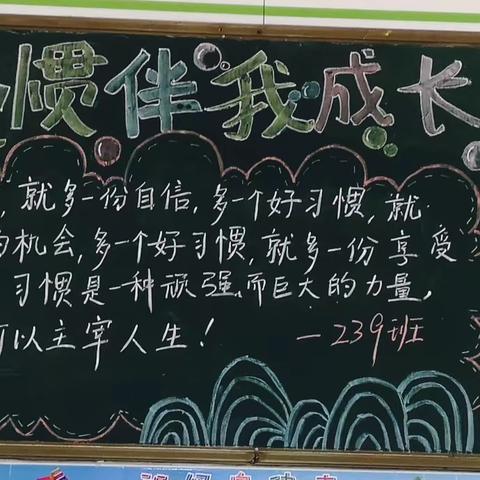 惯伴我成长
，就多一份自信，多一个好习惯，就
的机会，多一个好习惯，就多一份享受
习惯是一种顽强而巨大的力量，
可以主宰人生！
—239班